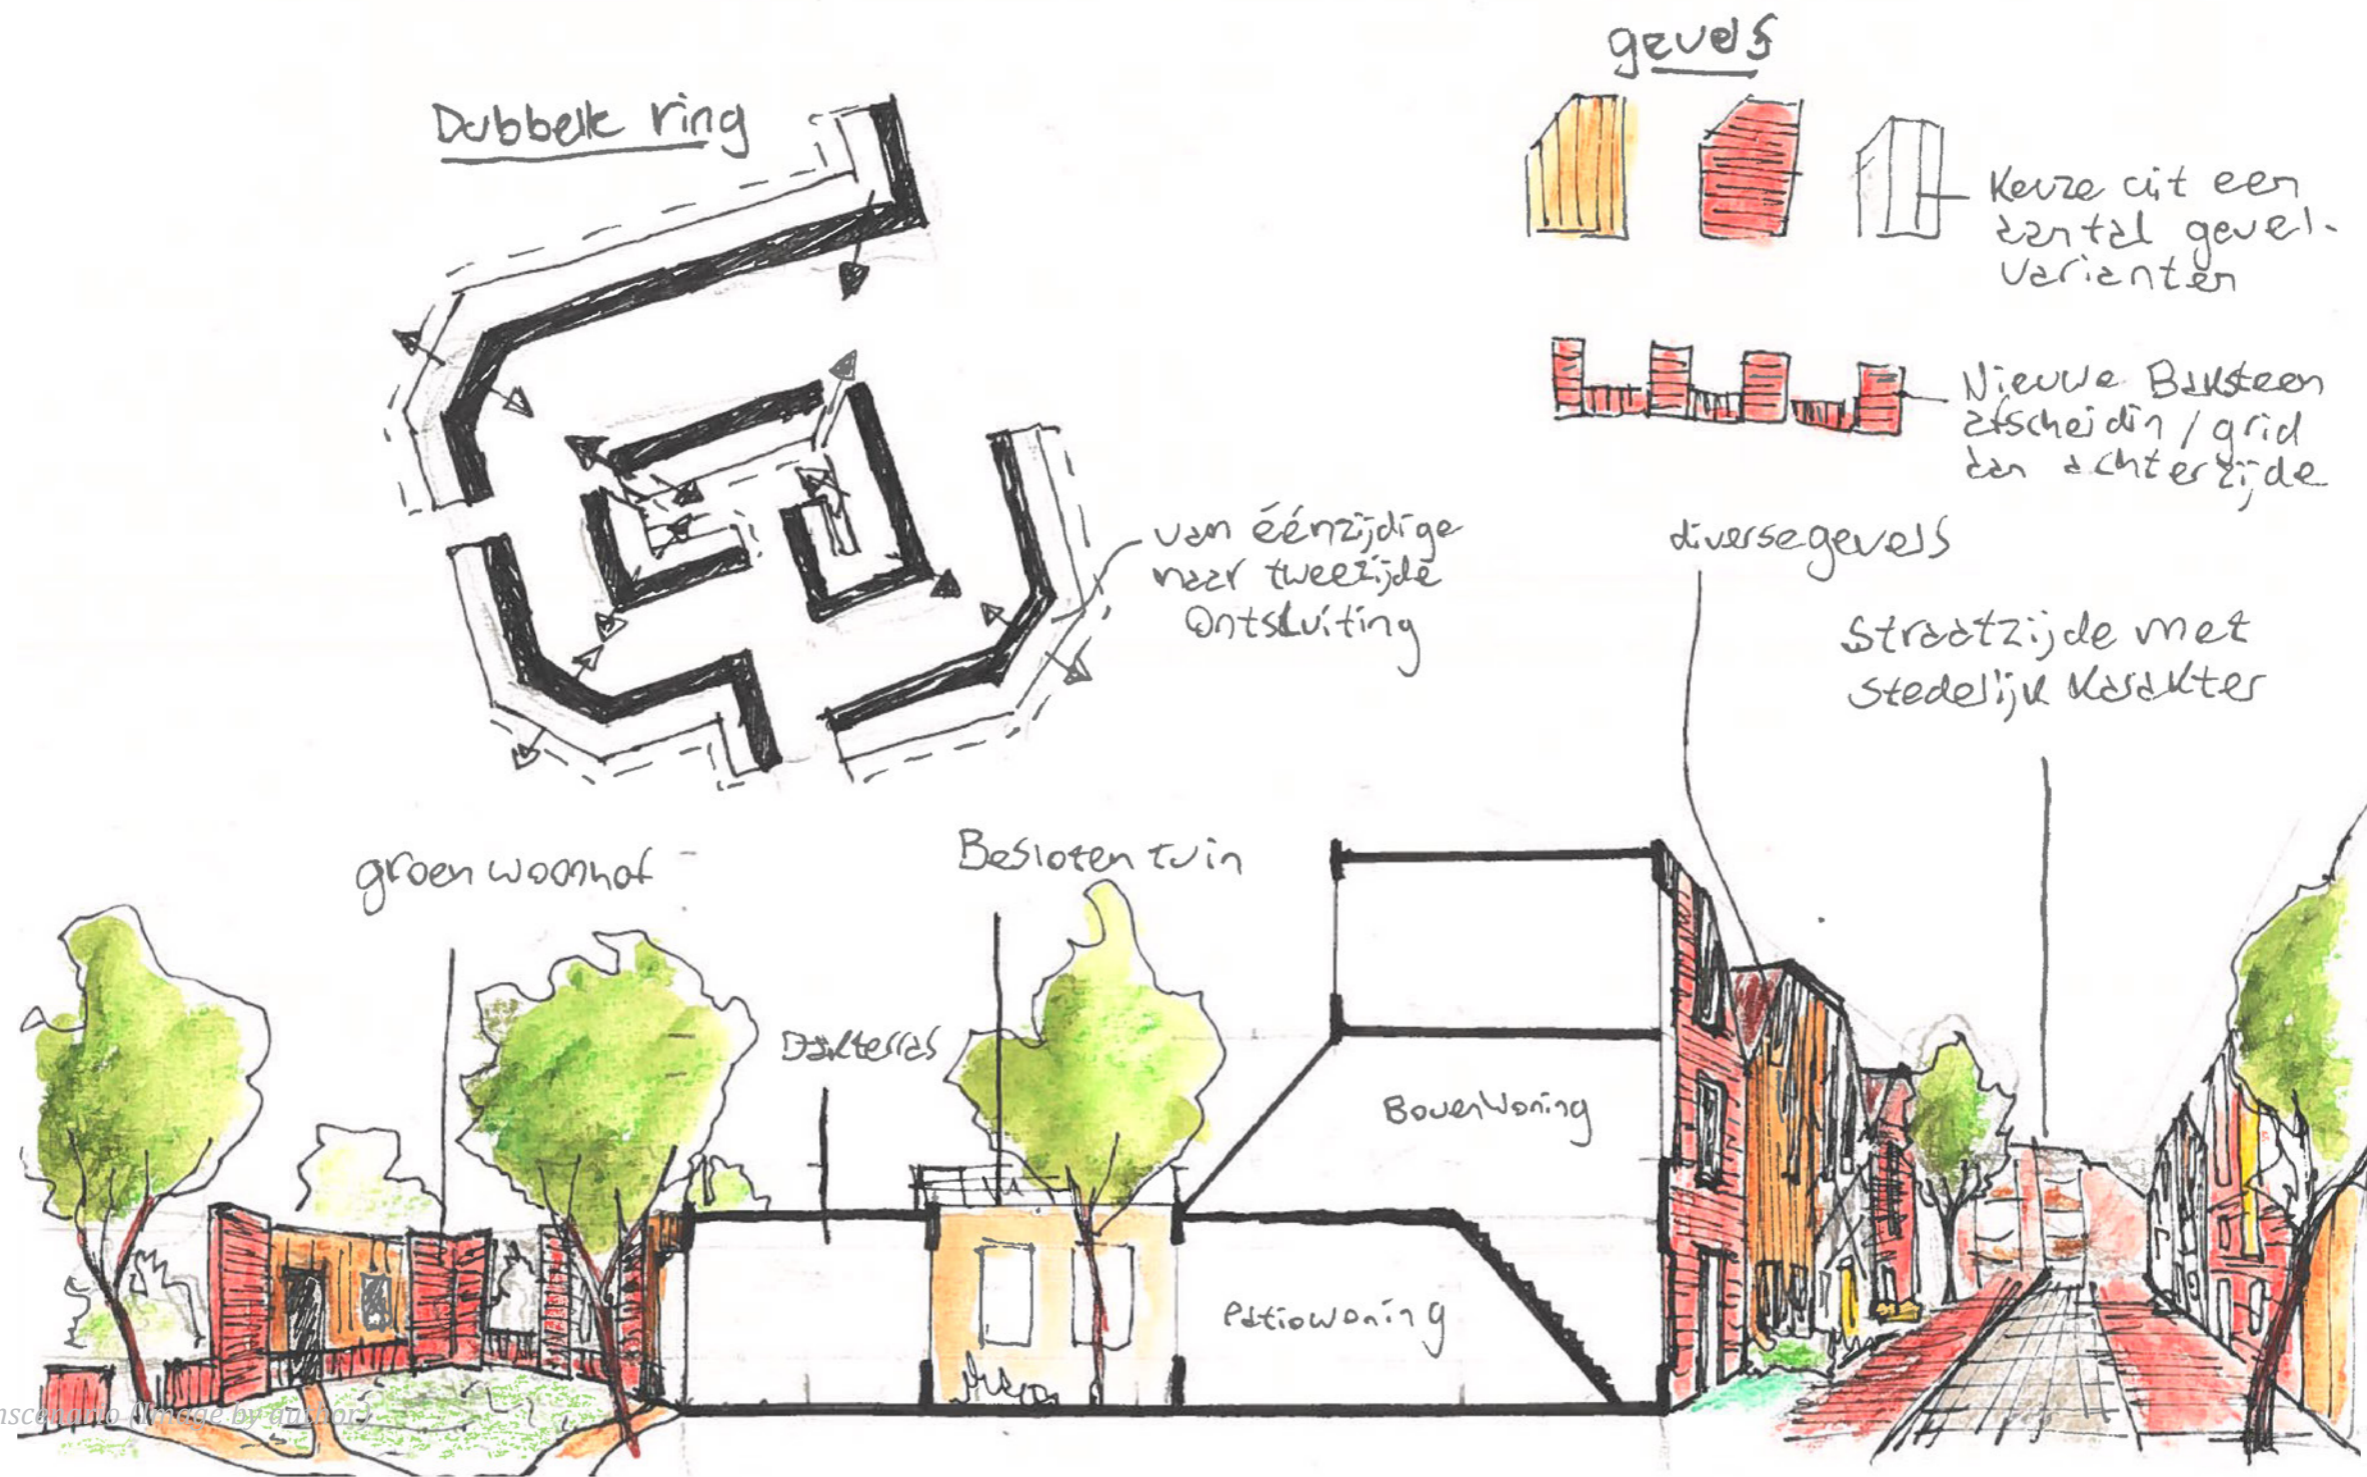 gevels
Dubbele ring
Keuze uit een
aantal gevel-
varianten
Nieuwe Baksteen
afscheidin / grid
aan achterzijde
van éénzijdige
naar tweezijde
Ontsluiting
diverse gevels
Straatzijde met
stedelijk karakter
groen woonhof
Besloten tuin
Dakterras
Bovenwoning
Patiowoning
nscenario (Image by author)